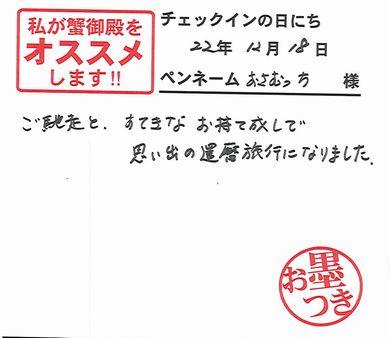 私が蟹御殿を
オススメ
します!!
チェックインの日にち
22年 12月 18日
ペンネーム おさむっち 様
ご馳走と、すてきな お持て成しで
思い出の還暦旅行になりました.
お墨つき